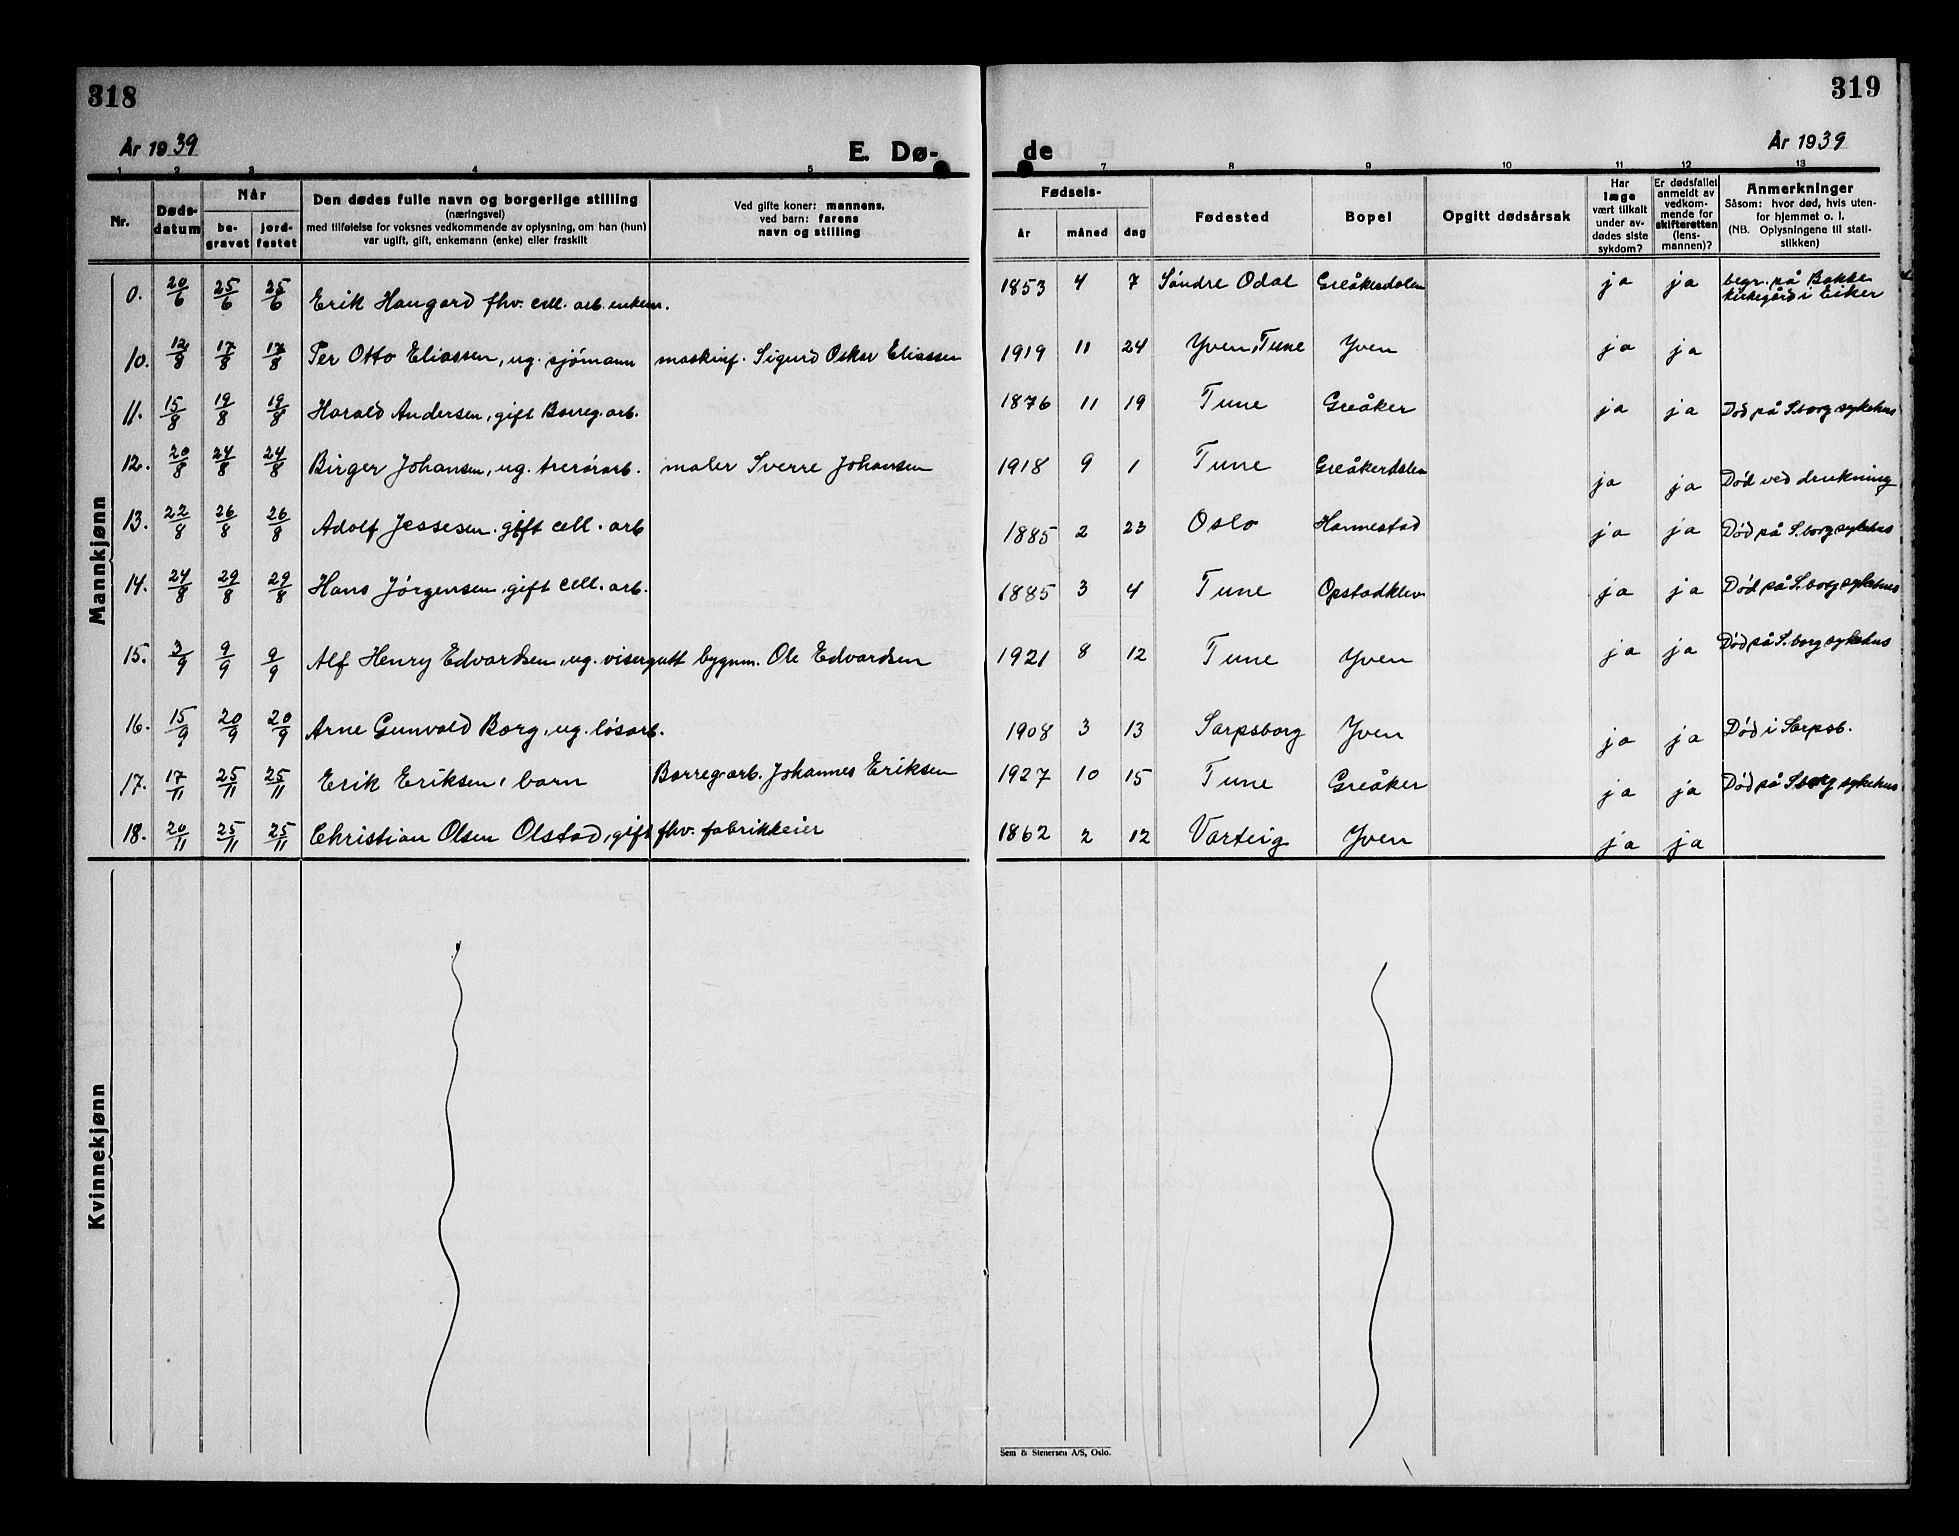 318
År 1939
E. Dø-
1 2 3 4 5
Nr.
Døds-
datum
Når
be-
gravet
jord-
festet
Den dødes fulle navn og borgerlige stilling
(næringsvei)
med tilføielse for voksnes vedkommende av oplysning, om han (hun)
var ugift, gift, enkemann (enke) eller fraskilt
Ved gifte koner: mannens,
ved barn: farens
navn og stilling
Mannkjønn
0. 20/6 25/6 25/6 Erik Haugard fhv. cell. arb. enkem.
10. 12/8 17/8 17/8 Per Otto Eliassen, ug. sjømann maskinf. Sigurd Oskar Eliassen
11. 15/8 19/8 19/8 Harald Andersen, gift Borreg. arb.
12. 20/8 24/8 24/8 Birger Johansen, ug. maler Sverre Johansen
13. 22/8 26/8 26/8 Adolf Jessesen, gift cell. arb
14. 24/8 29/8 29/8 Hans Jørgensen, gift cell. arb.
15. 3/9 9/9 9/9 Alf Henry Edvardsen, ug. visergutt bygnm. Ole Edvardsen
16. 15/9 20/9 20/9 Arne Gunvald Borg, ug. løsarb.
17. 17/11 25/11 25/11 Erik Eriksen, barn Borreg. arb. Johannes Eriksen
18. 20/11 25/11 25/11 Christian Olsen Olstad, gift fhv. fabrikkeier
Kvinnekjønn
319
År 1939
de
7 8 9 10 11 12 13
Fødsels-
år måned dag
Fødested
Bopel
Opgitt dødsårsak
Har
læge
vært tilkalt
under av-
dødes siste
sykdom?
Er dødsfallet
anmeldt av
vedkom-
mende for
skifteretten
(lens-
mannen)?
Anmerkninger
Såsom: hvor død, hvis uten-
for hjemmet o. l.
(NB. Oplysningene til stati-
stikken)
1853 4 7 Søndre Odal Greåkerdalen ja ja begr. på Bakke
kirkegård i Eiker
1919 11 24 Yven, Tune Yven ja ja
1876 11 19 Tune Greåker ja ja Død på S.borg sykehus
1918 9 1 Tune Greåkerdalen ja ja Død ved drukning
1885 2 23 Oslo Hannestad ja ja Død på S.borg sykehus
1885 3 4 Tune Opstadklev ja ja Død på S.borg sykehus
1921 8 12 Tune Yven ja ja Død på S.borg sykehus
1908 3 13 Sarpsborg Yven ja ja Død i Sarpsb.
1927 10 15 Tune Greåker ja ja Død på S borg sykehus
1862 2 12 Varteig Yven ja ja
Sem & Stenersen A/S, Oslo.